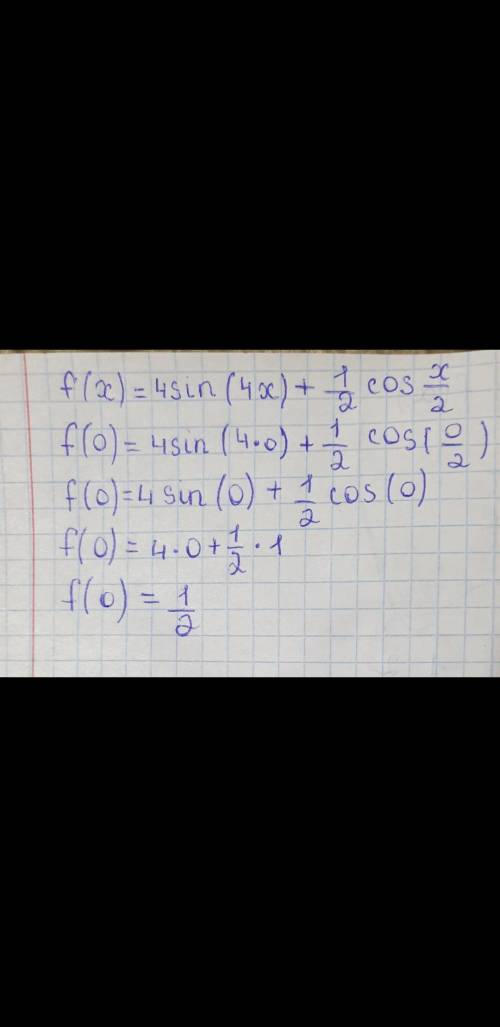 f(x) = 4sin(4x) + 1/2 cos x/2
f(0) = 4sin(4·0) + 1/2 cos(0/2)
f(0) = 4sin(0) + 1/2 cos(0)
f(0) = 4·0 + 1/2 · 1
f(0) = 1/2